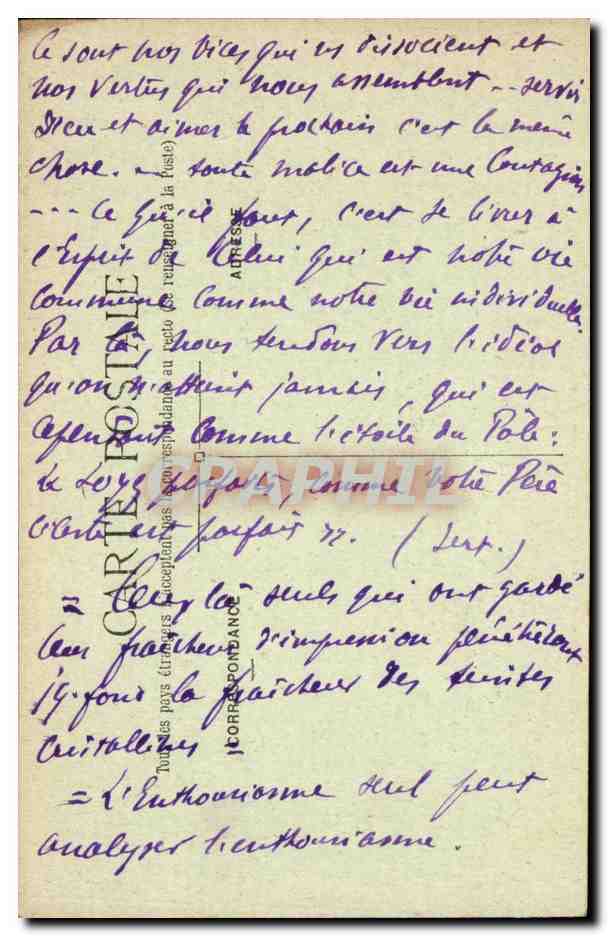 Ce sont nos vices qui ns dissocient et
nos vertus qui nous assemblent -- servir
Dieu et aimer le prochain c'est la même
chose. -- toute malice est une contagion
--- Ce qu'il faut, c'est se livrer à
l'Esprit de Celui qui est notre vie
commune comme notre vie individuelle.
Par là, nous tendons vers l'idéal
qu'on n'atteint jamais, qui est
cependant comme l'étoile du Pôle:
"Soyez parfaits, comme votre Père
céleste est parfait". (Sert.)
= Ceux là seuls qui ont gardé
leur fraîcheur d'impression pénètreront
fond la fraîcheur des
cristallines =
= L'Enthousiasme seul peut
analyser l'enthousiasme.
CARTE POSTALE
Tous les pays étrangers n'acceptent pas la correspondance au recto (Se renseigner à la Poste)
CORRESPONDANCE
ADRESSE
CPAPHIL